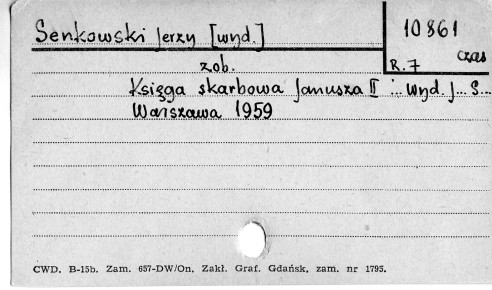 Senkowski Jerzy [wyd.]
10861
czas
R. 7
zob.
Księga skarbowa Janusza II i... wyd. J... S...
Warszawa 1959
CWD. B-15b. Zam. 657-DW/On. Zakł. Graf. Gdańsk, zam. nr 1795.